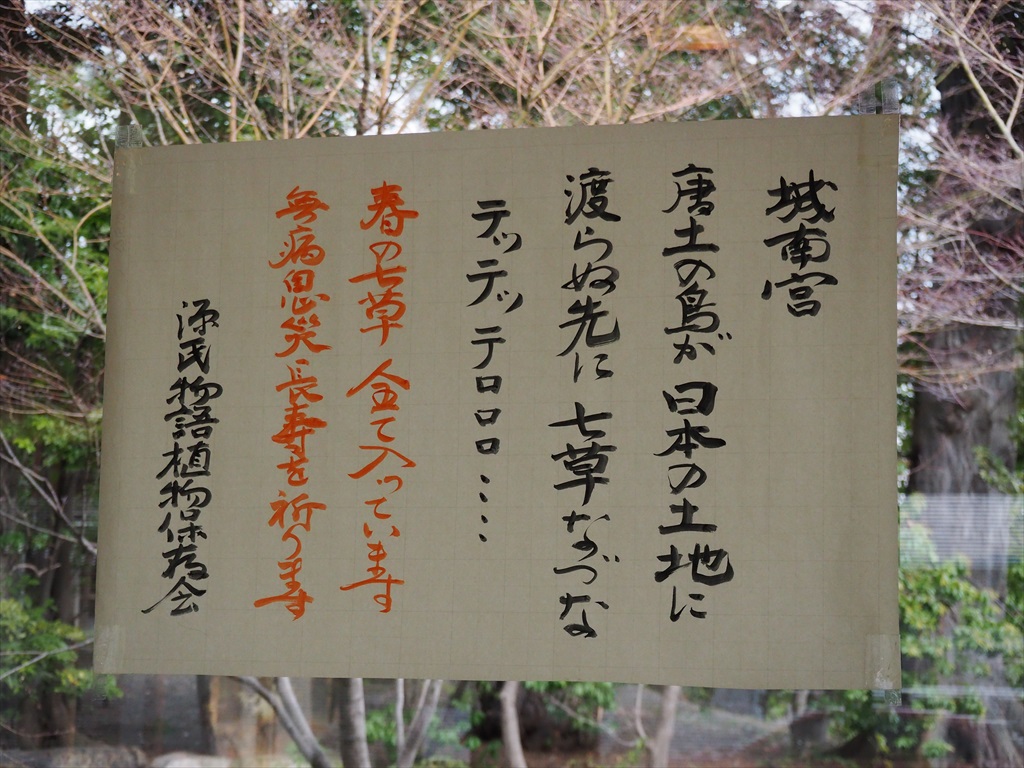 城南宮
唐土の鳥が日本の土地に
渡らぬ先に七草なづな
テッテッテロロロ……
春の七草全て入っています
無病息災長寿を祈ります
源氏物語植物保存会